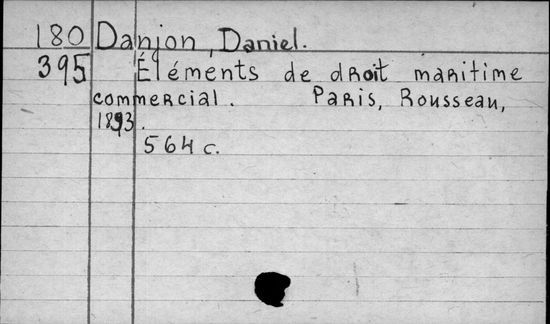 180 Danjon, Daniel.
395 Éléments de droit maritime
commercial. Paris, Rousseau,
1893.
564 c.